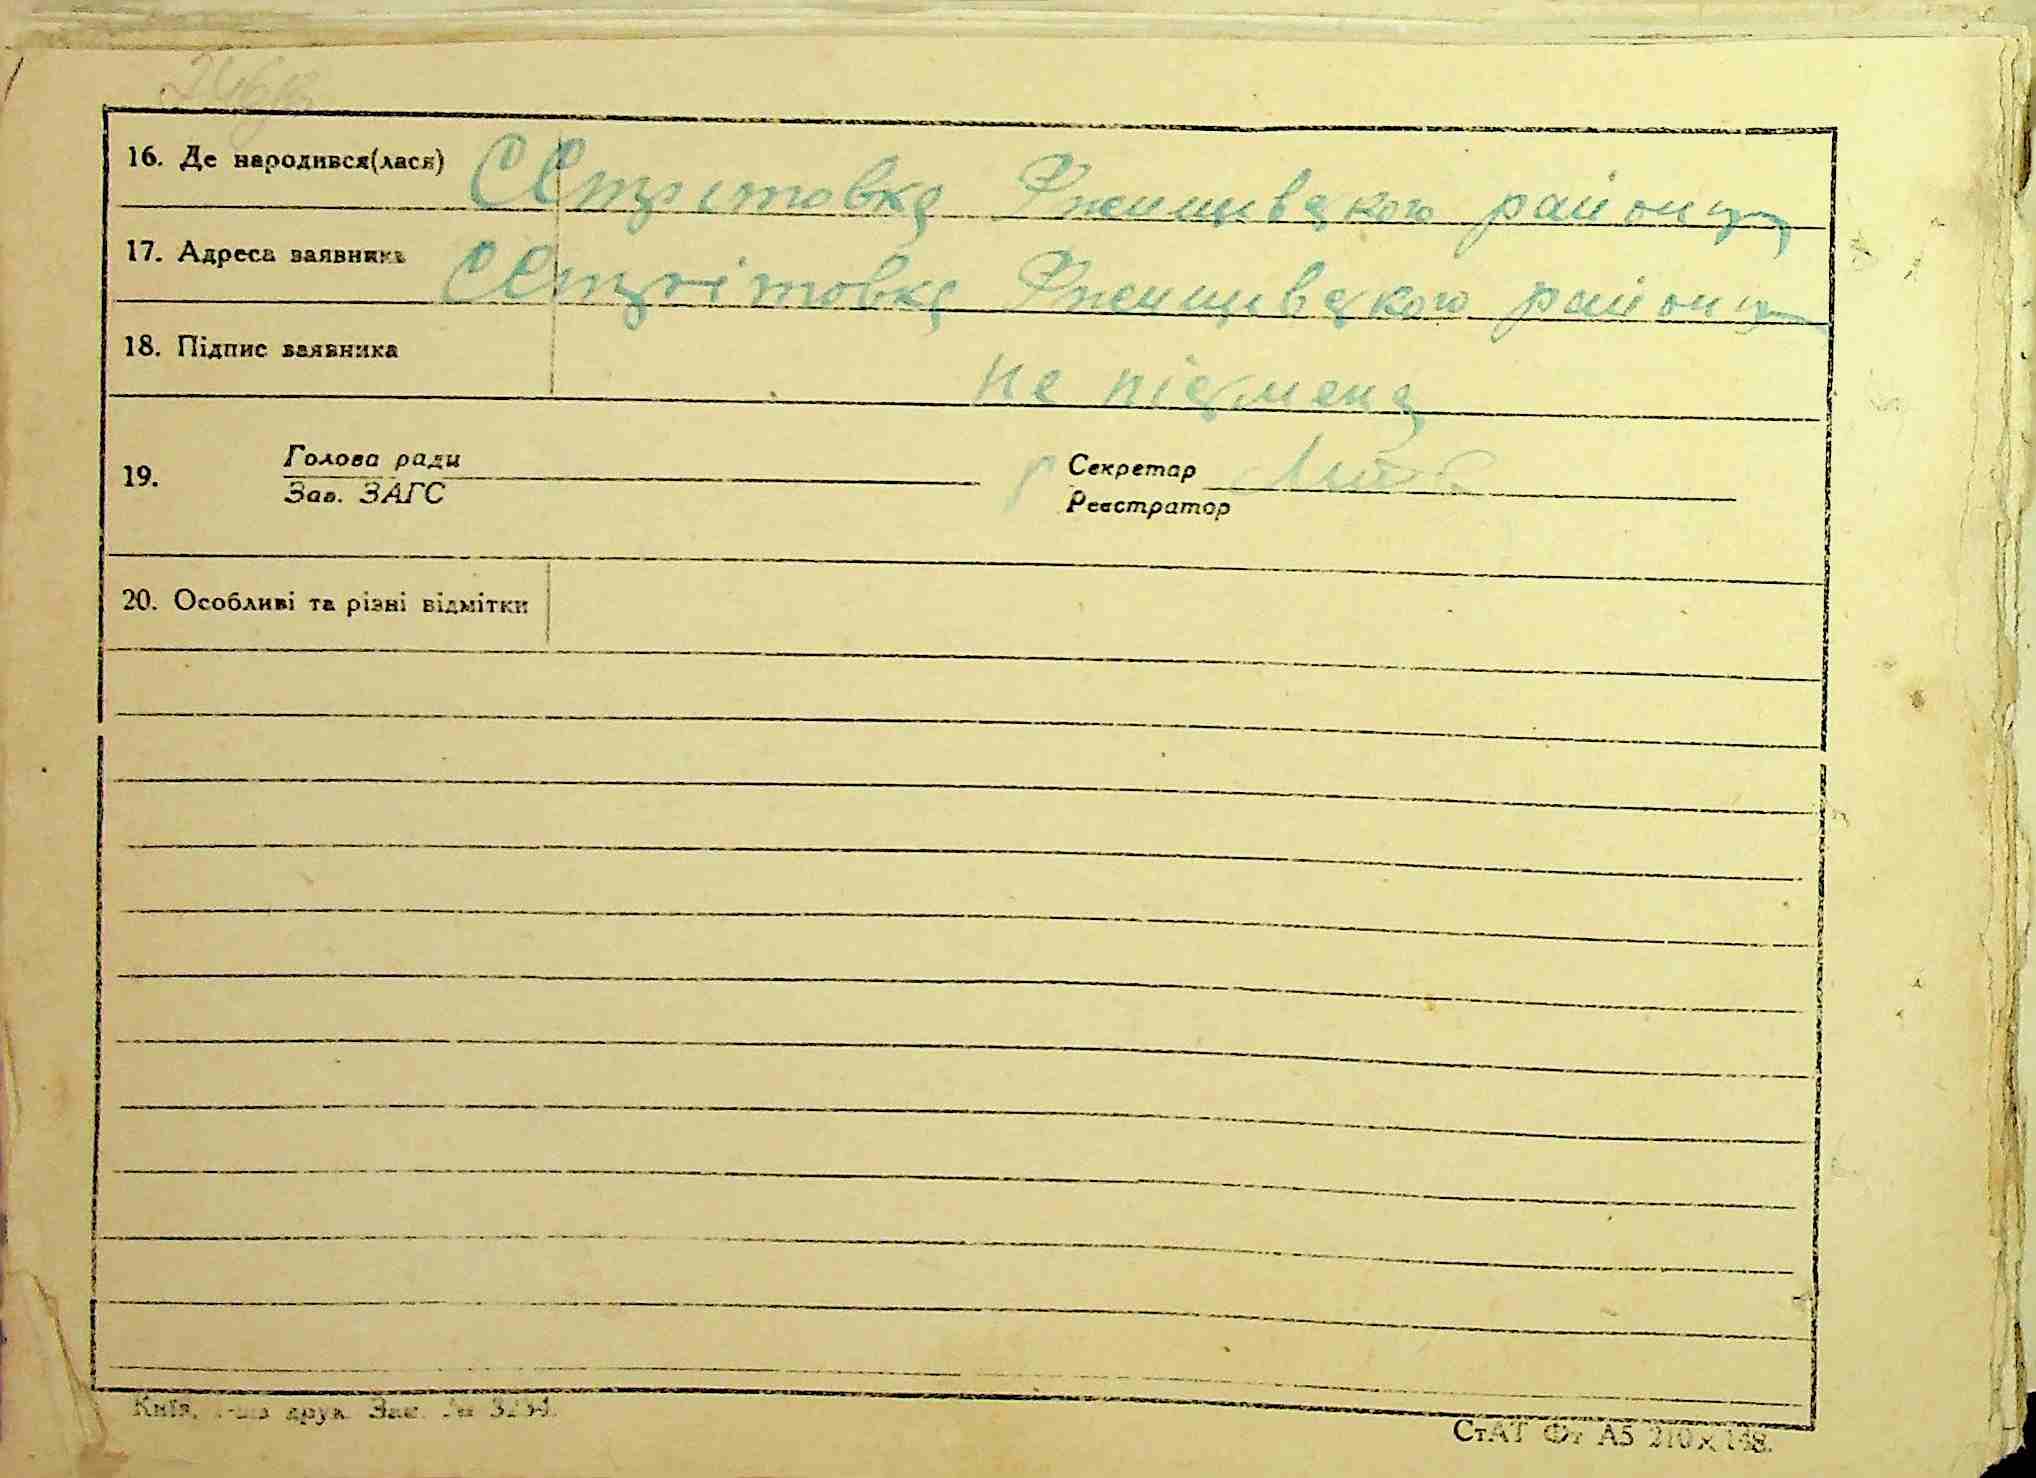 16. Де народився(лася) с Стрітовка Ржищівського району
17. Адреса заявника с Стрітовка Ржищівського району
18. Підпис заявника не підмена
19. Голова ради Секретар
Зав. ЗАГС Реєстратор
20. Особливі та різні відмітки
Київ, друк. Зам. №
СтАТ Фт А5 210×148.